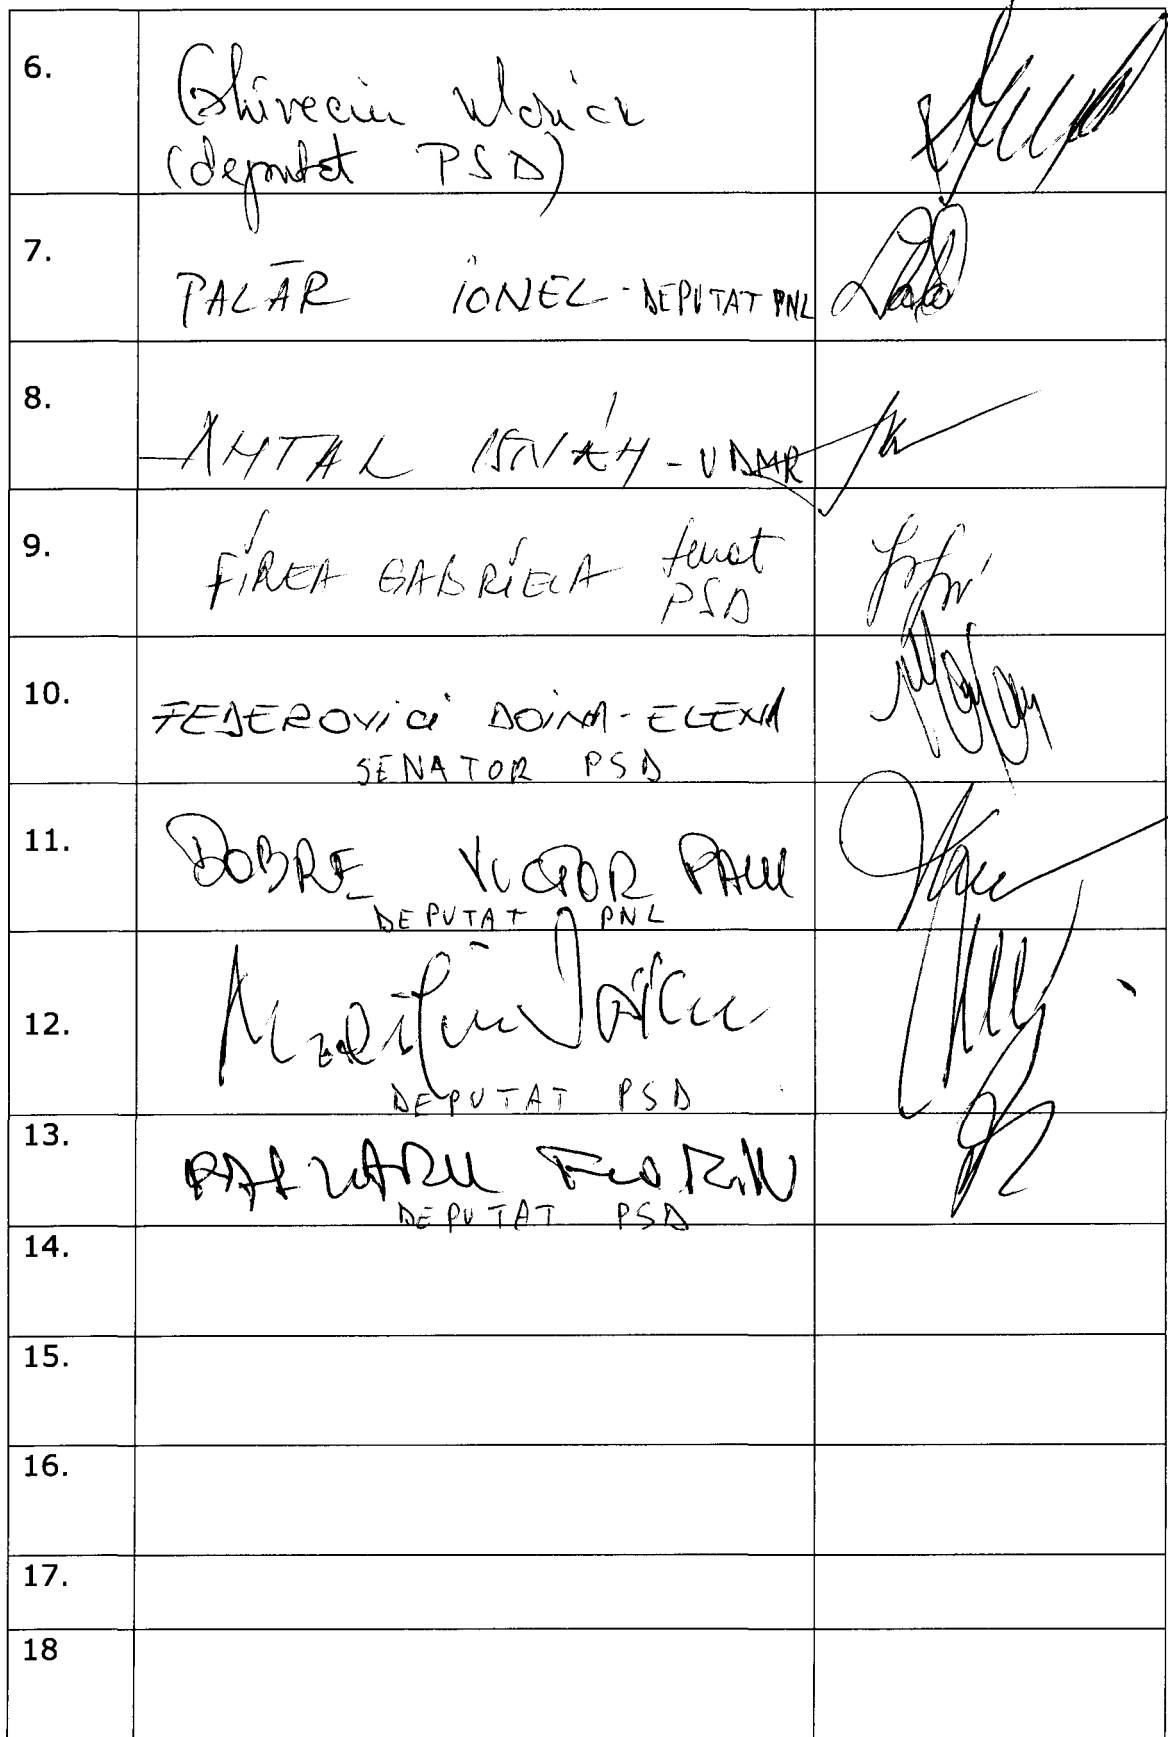 6.
Ghiveciu
(deputat PSD)
7.
PALĂR IONEL - DEPUTAT PNL
8.
ANTAL ISTVÁN - UDMR
9.
FIREA GABRIELA senat
PSD
10.
FEDEROVICI DOINA-ELENA
SENATOR PSD
11.
DOBRE VICTOR PAUL
DEPUTAT PNL
12.
DEPUTAT PSD
13.
DEPUTAT PSD
14.
15.
16.
17.
18